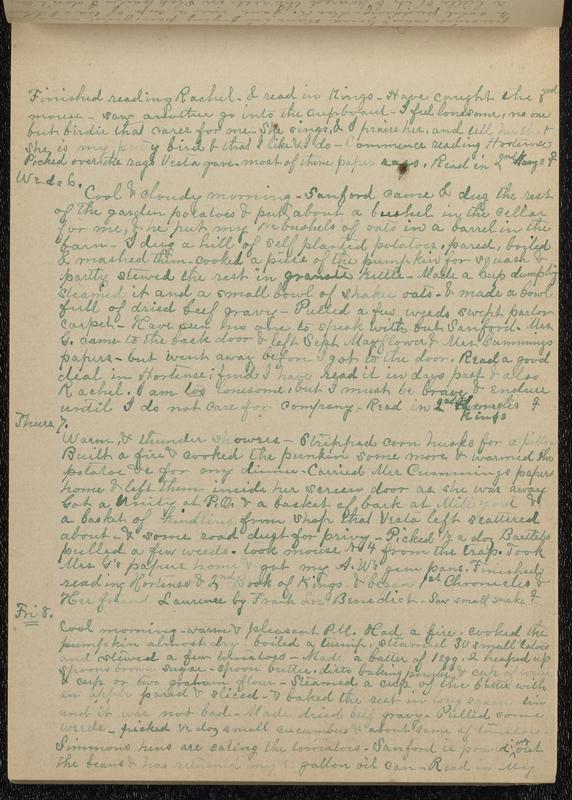 Finished reading Rachel & read in Kings - Have caught the 3rd
mouse - saw another go into the cupboard - I feel lonesome, no one
but birdie that cares for me. She sings, & I praise her, and tell her that
she is my pretty birdie & that I like I do - Commence reading Hortense
Picked over the rags Vesta gave. most of them paper rags. Read in 2nd Kings &
Weds 6.
Cool & cloudy morning - Sanford came & dug the rest
of the garden potatoes & put about a bushel in the cellar
for me, & he put my bushels of oats in a barrel in the
barn - I dug a hill of self planted potatoes, pared, boiled
& mashed them - cooked a piece of the pumpkin for squash &
partly stewed the rest in granite kettle - Made a cup dumpling
steamed it and a small bowl of shaker oats - & made a bowl
full of dried beef gravy - Pulled a few weeds swept parlor
carpet - Have seen no one to speak with but Sanford - Mrs
G. came to the back door & left Sept Mayflower & Mrs Cummings
papers - but went away before I got to the door. Read a good
deal in Hortense, find I have read it in days past & also
Rachel. I am too lonesome, but I must be brave & endure
until I do not care for company - Read in 2nd Chronicles &
Kings
Thurs 7.
Warm, & thunder showers - Stripped corn husks for a pillow
Built a fire & cooked the punkin some more & warmed the
potatoe &c for my dinner - Carried Mrs Cummings papers
home & left them inside her screen door as she was away
Got a Unity at P.O. & a basket of bark at Mill yard &
a basket of kindling from shop that Vesta left scattered
about - & some road dust for privy - Picked 1/2 a doz Bartletts
pulled a few weeds - took mouse No 4 from the trap. Took
Mrs G's papers home & got my A.W's gem pans. Finished
reading Hortense & 2nd Book of Kings & began 1st Chronicles &
Her friend Laurence by Frank Lee Benedict - Saw small snake &
Fri 8.
Cool morning - warm & pleasant P.M. Had a fire, cooked the
pumpkin almost dry - boiled a turnip, steamed 30 small tatoes
and stewed a few tomatoes - Made a batter of 1 egg, 2 heaped up
spoons brown sugar - spoon butter, ditto baking powder & cup of water
& cup or two graham flour - Steamed a cup of the batter with
an apple pared & sliced - & baked the rest in long square tin
and it was not bad - Made dried beef gravy - Pulled some
weeds - picked 1/2 doz small cucumbers & about same of tomatoes -
Simmons hens are eating the tomatoes - Sanford is pounding out
the beans & has returned my gallon oil can - Read in My